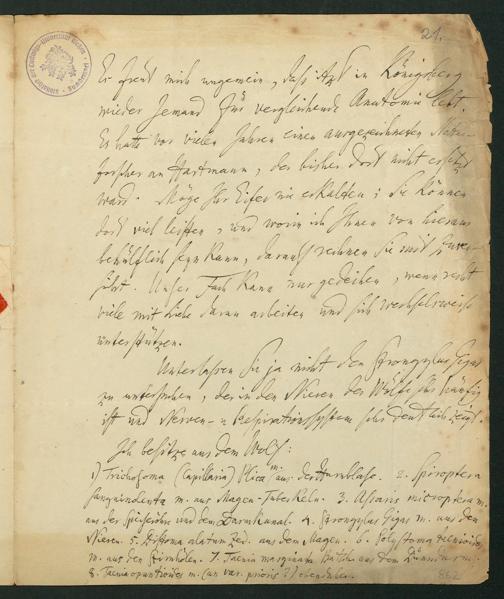 21.
Es freut mich ungemein, daß itzt in Königsberg
wieder Jemand für vergleichende Anatomie lebt.
Es hatte vor vielen Jahren einen ausgezeichneten Natur-
forscher an Hartmann, der bisher dort nicht ersetzt
ward. Möge Ihr Eifer nie erkalten; Sie können
dort viel leisten, und worin ich Ihnen von hieraus
behülflich seyn kann, darauf rechnen Sie mit Zuver-
sicht. Unser Fach kann nur gedeihen, wenn recht
viele mit Liebe daran arbeiten und sich wechselsweise
unterstützen.
Unterlassen Sie ja nicht den Strongylus Gigas
zu untersuchen, der in den Nieren des Wolfs häufig
ist und Nerven- u Respirationssystem sehr deutlich zeigt.
Ich besitze aus dem Wolf:
1) Trichosoma (Capillaria) Plica m. aus der Harnblase. 2. Spiroptera
sanguinolenta m. aus Magen-Tuberkeln. 3. Ascaris microptera m.
aus der Speiseröhre und dem Darmkanal. 4. Strongylus Gigas m. aus den
Nieren. 5. Distoma alatum Zed. aus dem Magen. 6. Polystoma taenioides
m. aus den Stirnhölen. 7. Taenia marginata Batsch aus dem Dünndarm.
8. Taenia opuntioides m. (an var. prioris?) ebendaher.
862